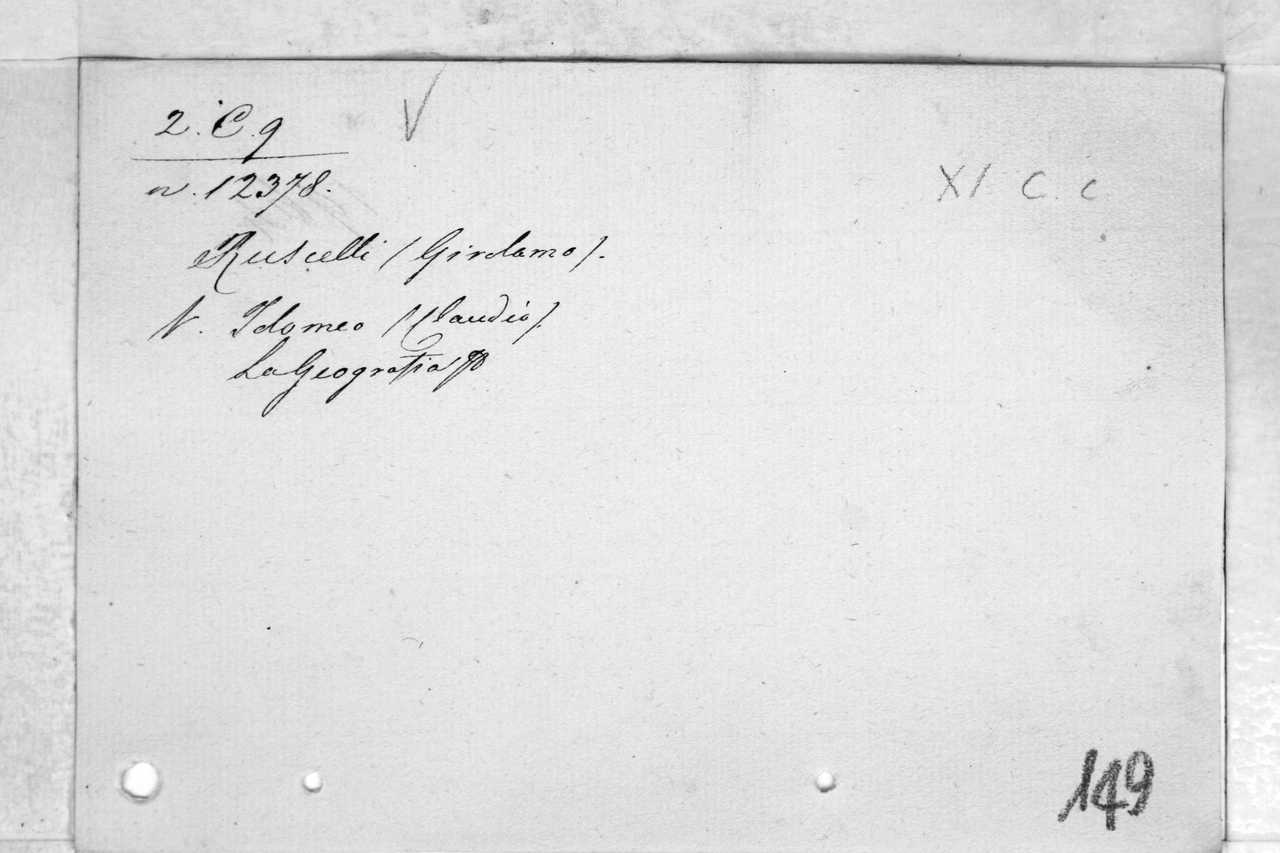 2. C. q
n. 12378.
XI C. c
Ruscelli (Girolamo).
V. Tolomeo (Claudio).
La Geografia
149